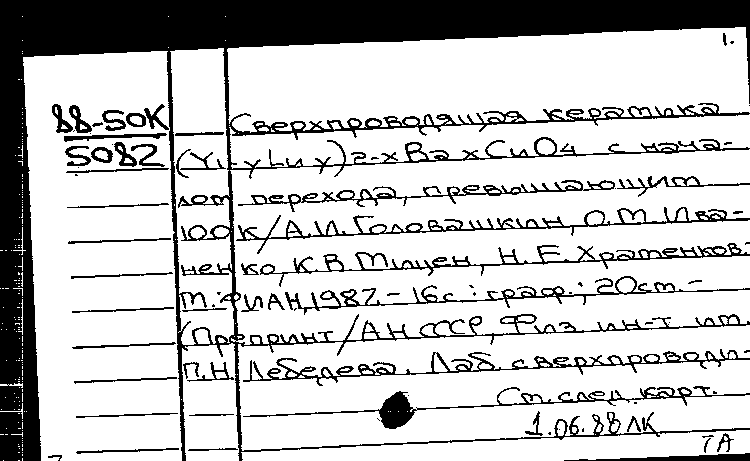 1.
88-50К
5082
Сверхпроводящая керамика
(Y1-yLuy)2-xBaxCuO4 с нача-
лом перехода, превышающим
100К/А.И. Головашкин, О.М. Ива-
ненко, К.В. Мицен, Н.Е. Храменков.
М.: ФИАН, 1987. - 16с : граф.; 20см. -
(Препринт/АН СССР, Физ. ин-т им.
П.Н. Лебедева. Лаб. сверхпроводи-
См. след. карт.
1.06.88 ЛК
ТА